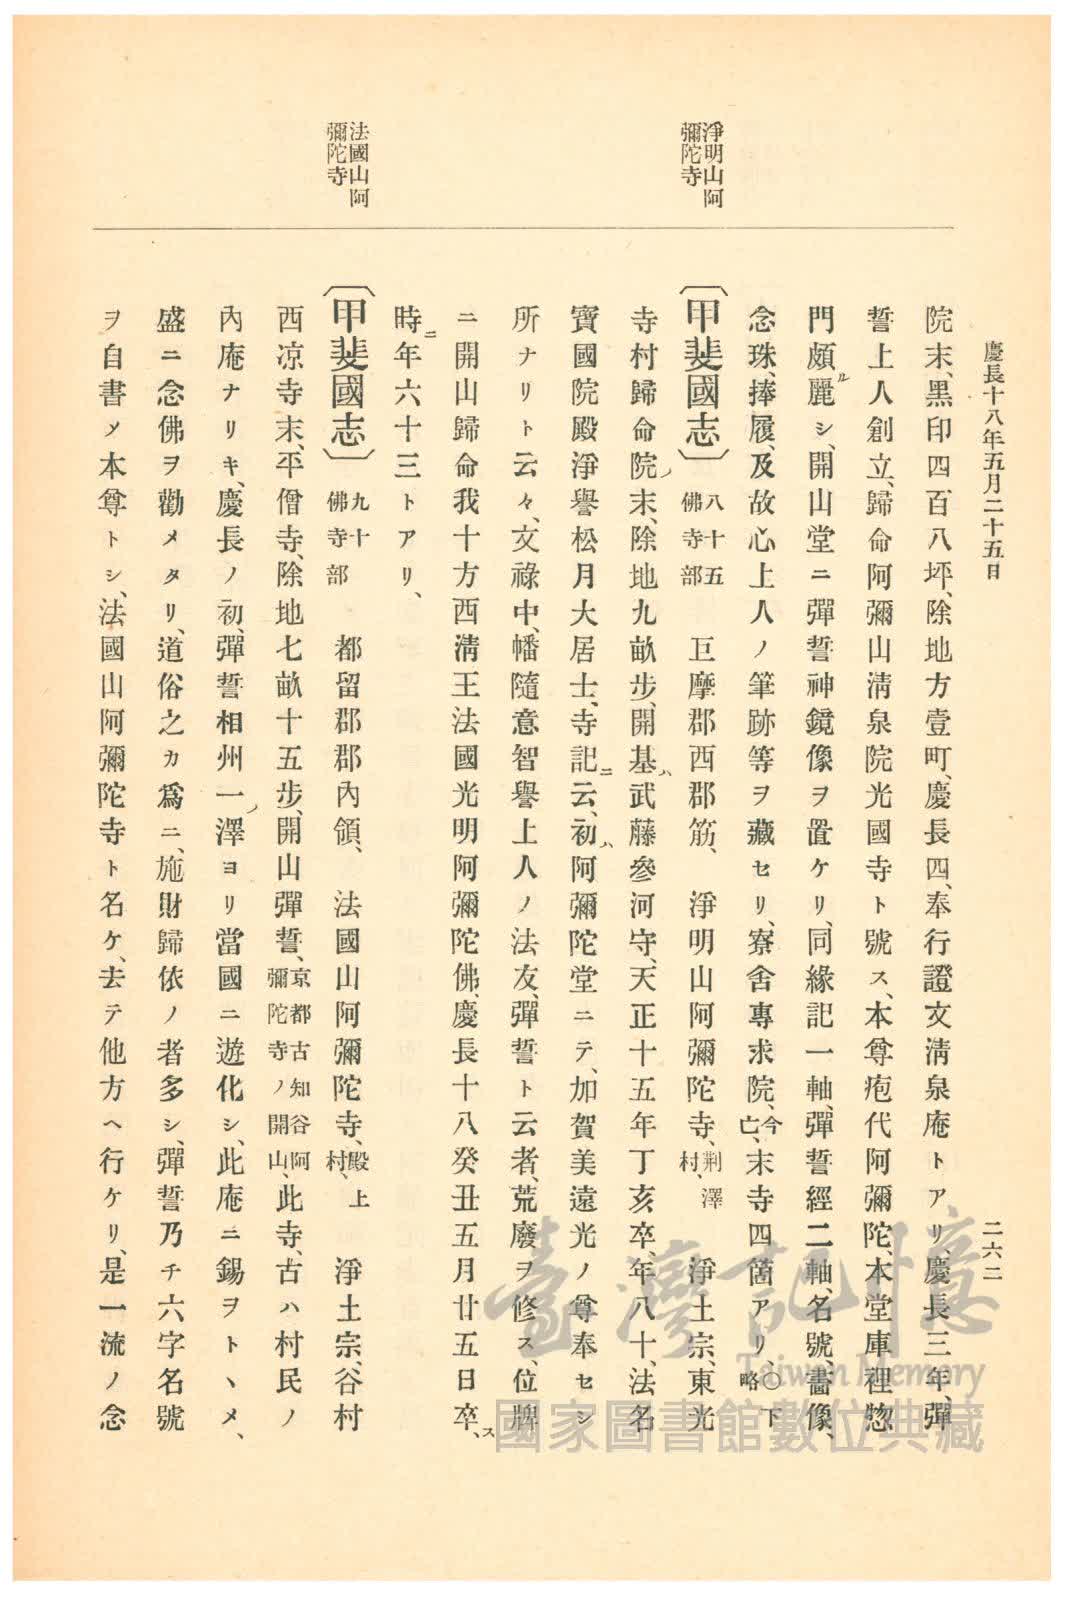 慶長十八年五月二十五日
二六二
院末、黑印四百八坪、除地方壹町、慶長四、奉行證文淸泉庵トアリ、慶長三年、彈
誓上人創立、歸命阿彌山淸泉院光國寺ト號ス、本尊疱代阿彌陀、本堂庫裡惣
門頗ル麗シ、開山堂ニ彈誓神鏡像ヲ置ケリ、同緣記一軸、彈誓經二軸、名號、畵像、
念珠、捧履、及故心上人ノ筆跡等ヲ藏セリ、寮舍專求院、今亡、末寺四箇アリ、〇下略
淨明山阿彌陀寺
〔甲斐國志〕八十五佛寺部 巨摩郡西郡筋、 淨明山阿彌陀寺、荆澤村、 淨土宗、東光
寺村歸命院ノ末、除地九畝步、開基ハ武藤參河守、天正十五年丁亥卒、年八十、法名
寶國院殿淨譽松月大居士、寺記ニ云、初ハ阿彌陀堂ニテ、加賀美遠光ノ尊奉セシ
所ナリト云々、文祿中、幡隨意智譽上人ノ法友、彈誓ト云者、荒廢ヲ修ス、位牌
ニ開山歸命我十方西淸王法國光明阿彌陀佛、慶長十八癸丑五月廿五日卒ス、
時ニ年六十三トアリ、
法國山阿彌陀寺
〔甲斐國志〕九十佛寺部 都留郡郡內領、 法國山阿彌陀寺、殿上村、 淨土宗、谷村
西凉寺末、平僧寺、除地七畝十五步、開山彈誓、京都古知谷阿彌陀寺ノ開山、此寺、古ハ村民ノ
內庵ナリキ、慶長ノ初、彈誓相州一ノ澤ヨリ當國ニ遊化シ、此庵ニ錫ヲトヽメ、
盛ニ念佛ヲ勸メタリ、道俗之カ爲ニ、施財歸依ノ者多シ、彈誓乃チ六字名號
ヲ自書メ本尊トシ、法國山阿彌陀寺ト名ケ、去テ他方ヘ行ケリ、是一流ノ念
臺灣記憶
Taiwan Memory
國家圖書館數位典藏